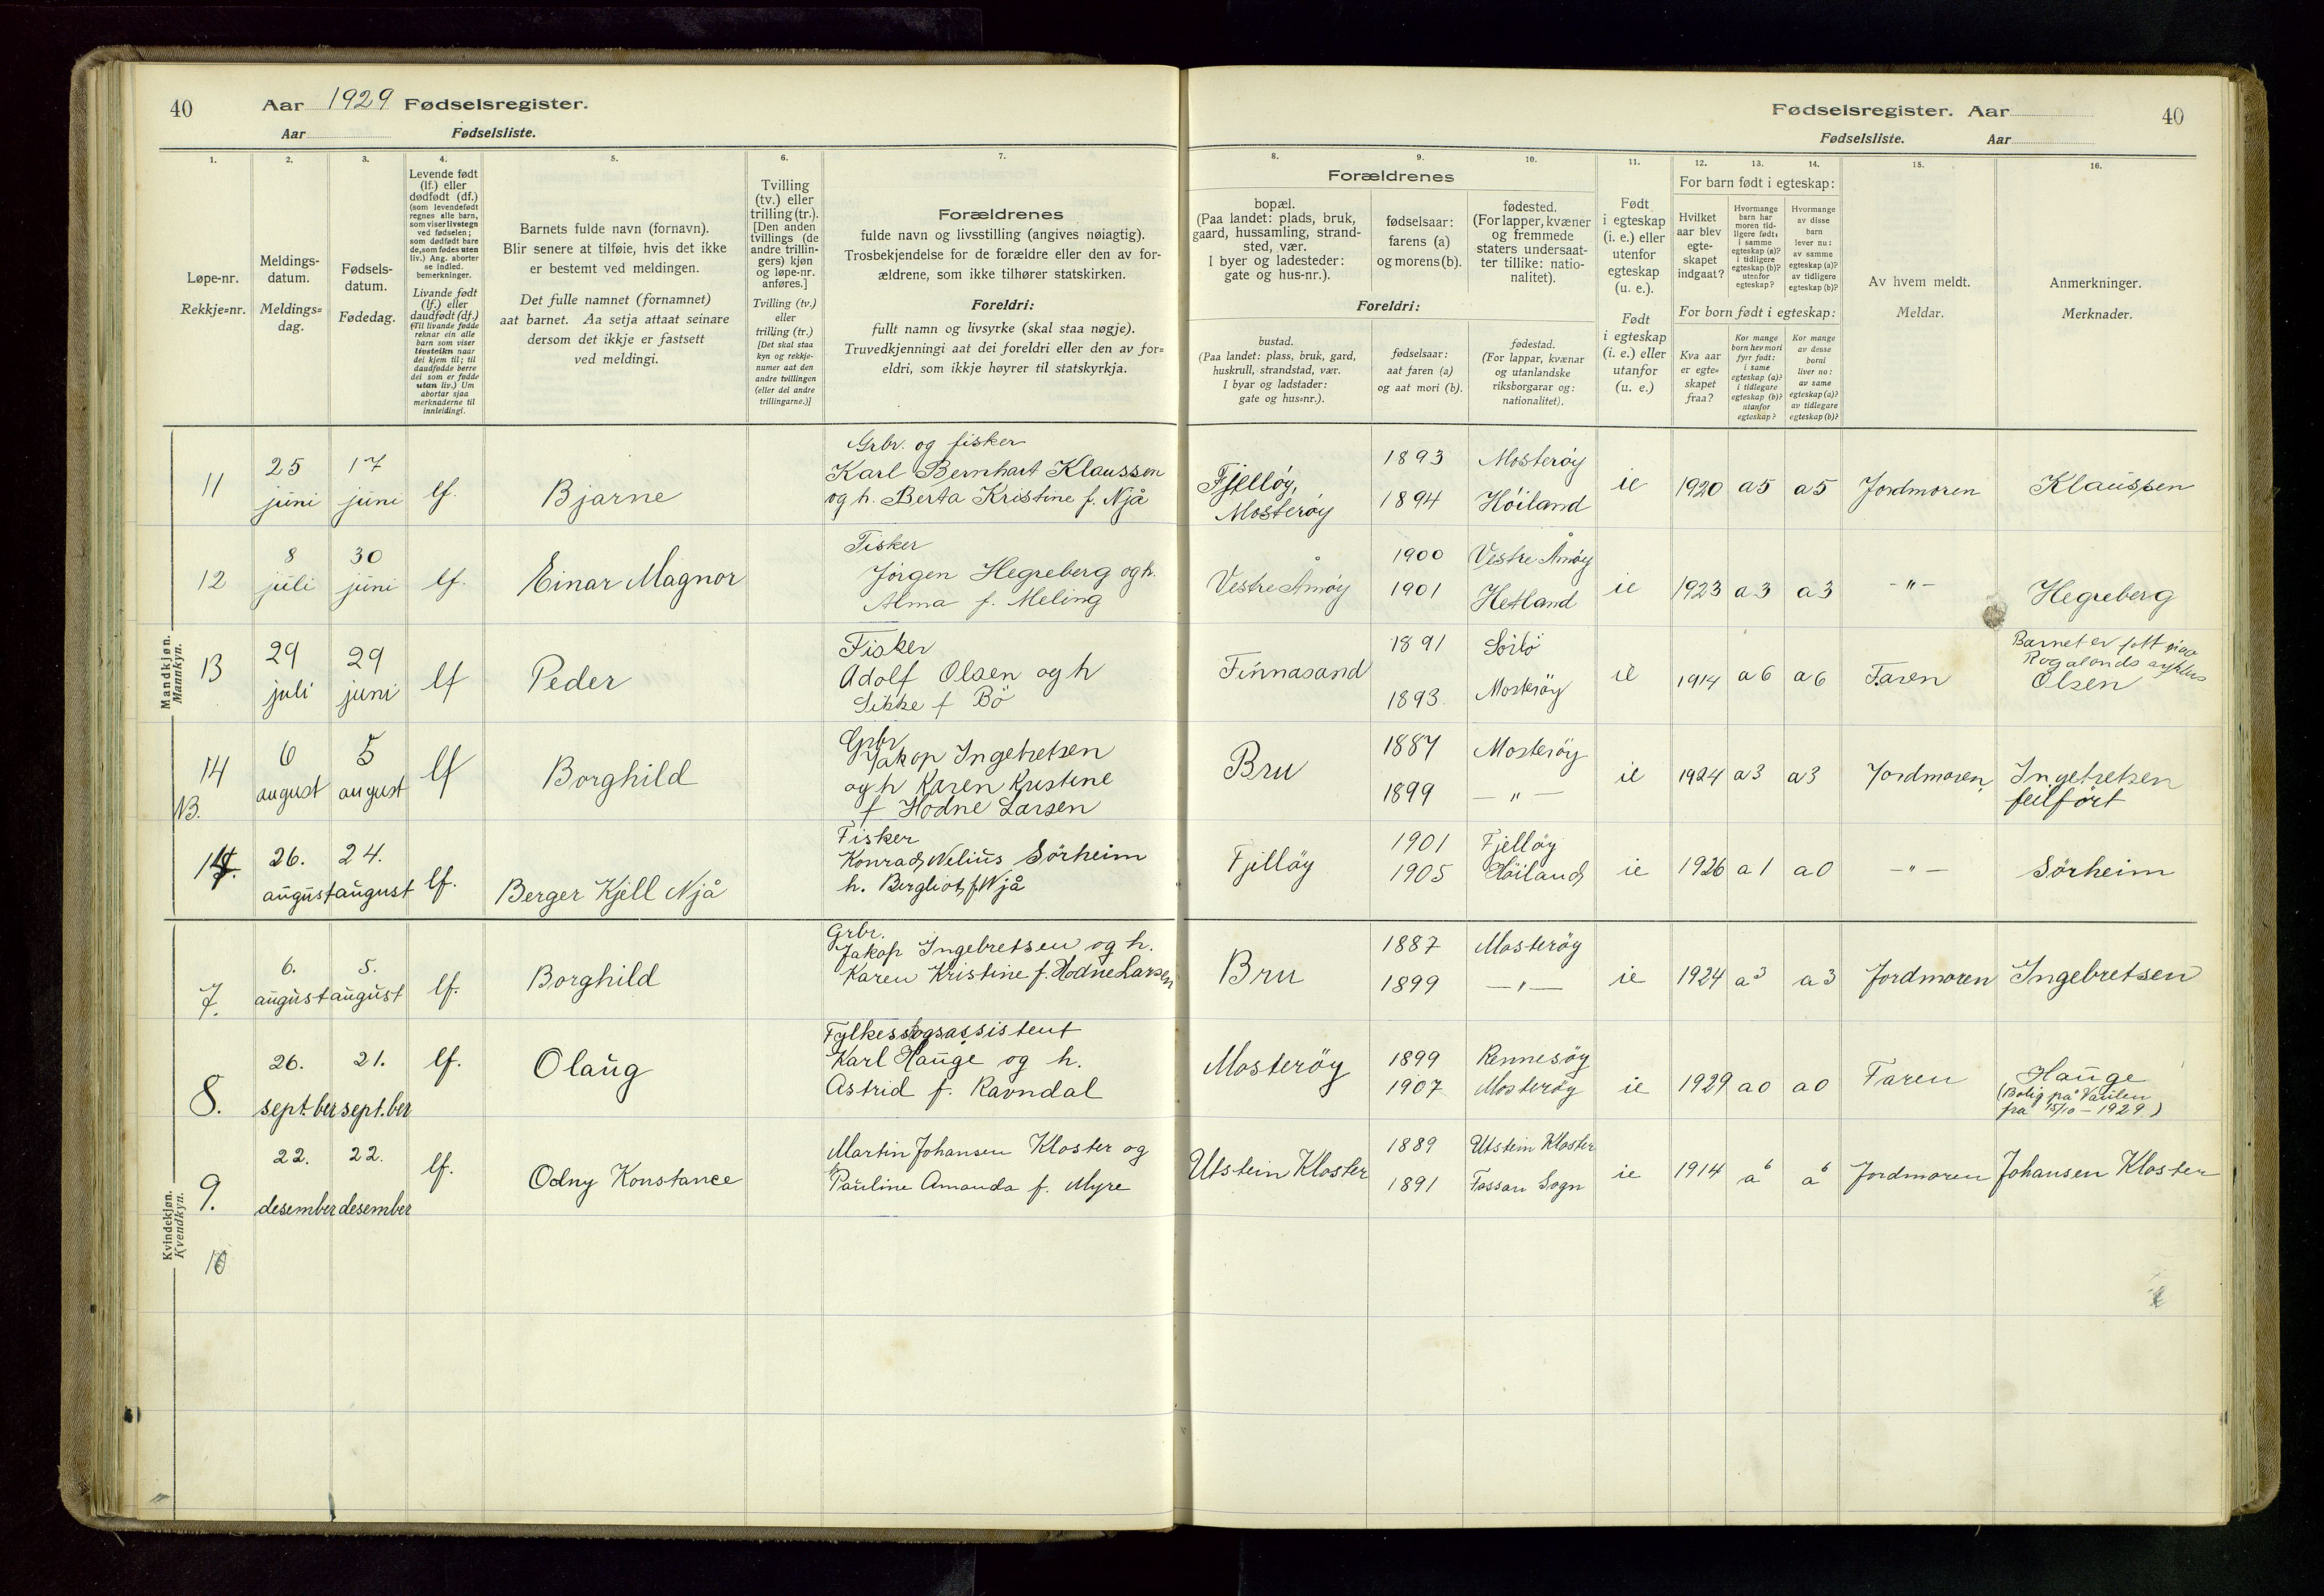 40 Aar 1929 Fødselsregister.
Aar Fødselsliste.
Fødselsregister. Aar 40
Fødselsliste. Aar
1. 2. 3. 4. 5. 6. 7. 8. 9. 10. 11. 12. 13. 14. 15. 16.
Løpe-nr.
Rekkje=nr.
Meldings-
datum.
Meldings=
dag.
Fødsels-
datum.
Fødedag.
Levende født
(lf.) eller
dødfødt (df.)
(som levendefødt
regnes alle barn,
som viser livstegn
ved fødselen;
som dødfødt bare
de, som fødes uten
liv.) Ang. aborter
se indled.
bemerkninger.
Livande født
(lf.) eller
daudfødt (df.)
(Til livande fødde
reknar ein alle
barn som viser
livsteikn naar
dei kjem til; til
daudfødde berre
dei som er fødde
utan liv.) Um
abortar sjaa
merknaderne til
innleidingi.
Barnets fulde navn (fornavn).
Blir senere at tilføie, hvis det ikke
er bestemt ved meldingen.
Det fulle namnet (fornamnet)
aat barnet. Aa setja attaat seinare
dersom det ikkje er fastsett
ved meldingi.
Tvilling
(tv.) eller
trilling (tr.).
[Den anden
tvillings (de
andre trillin-
gers) kjøn
og løpe-nr.
anføres.]
Tvilling (tv.)
eller
trilling (tr.)
[Det skal staa
kyn og rekkje-
numer aat den
andre tvillingen
(eller dei andre
trillingarne.)]
Forældrenes
fulde navn og livsstilling (angives nøiagtig).
Trosbekjendelse for de forældre eller den av for-
ældrene, som ikke tilhører statskirken.
Foreldri:
fullt namn og livsyrke (skal staa nøgje).
Truvedkjenningi aat dei foreldri eller den av for=
eldri, som ikkje høyrer til statskyrkja.
Forældrenes
bopæl.
(Paa landet: plads, bruk,
gaard, hussamling, strand-
sted, vær.
I byer og ladesteder:
gate og hus-nr.).
fødselsaar:
farens (a)
og morens (b).
fødested.
(For lapper, kvæner
og fremmede
staters undersaat-
ter tillike: natio-
nalitet).
Foreldri:
bustad.
(Paa landet: plass, bruk, gard,
huskrull, strandstad, vær.
I byar og ladstader:
gate og hus=nr.).
fødselsaar:
aat faren (a)
og aat mori (b).
fødestad.
(For lappar, kvænar
og utanlandske
riksborgarar og:
nationalitet).
Født
i egteskap
(i. e.) eller
utenfor
egteskap
(u. e.).
Født
i egteskap
(i. e.) eller
utanfor
(u. e.)
For barn født i egteskap:
Hvilket
aar blev
egte-
skapet
indgaat?
Hvormange
barn har
moren tid-
ligere født:
i samme
egteskap (a)?
i tidligere
egteskap (b)?
utenfor
egteskap?
Hvormange
av disse
barn
lever nu:
av samme
egteskap (a)?
av tidligere
egteskap (b)?
For born født i egteskap:
Kva aar
er egte=
skapet
fraa?
Kor mange
born hev mori
fyrr født:
i same
egteskap (a)?
i tidlegare
egteskap (b)?
utanfor
egteskap?
Kor mange
av desse
borni
liver no:
av same
egteskap (a)?
av tidlegare
egteskap (b)?
Av hvem meldt.
Meldar.
Anmerkninger.
Merknader.
Mandkjøn.
Mannkyn.
Grbr. og fisker
11 25 juni 17 juni lf. Bjarne Karl Bernhart Klaussen
og h. Berta Kristine f. Njå
Fjelløy, Mosterøy 1893 Mosterøy 1894 Höiland ie 1920 a5 a5 Jordmoren Klaussen
Fisker
12 8 juli 30 juni lf. Einar Magnor Jørgen Hegreberg og h.
Alma f. Meling
Vestre Åmøy 1900 Vestre Åmøy 1901 Hetland ie 1923 a3 a3 -"- Hegreberg
Fisker
13 29 juli 29 juni lf Peder Adolf Olsen og h
Sikke f Bö
Finnasand 1891 1893. Mosterøy ie 1914 a6 a6 Faren Barnet er født
Rogalands
Olsen
Grbr
14 6 august 5 august lf Borghild Jakop Ingebretsen
og h Karen Kristine
f Hodne Larsen
Bru 1887 Mosterøy 1899 -"- ie 1924 a3 a3 Jordmoren Ingebretsen
feilført
NB.
Fisker
14. 26. august 24. august lf. Berger Kjell Njå Konrad Nelius Sörheim
h. Bergliot f. Njå
Fjelløy 1901 Fjelløy 1905 Höiland ie 1926 a1 a0 -"- Sörheim
Kvindekjøn.
Kvendkyn.
Grbr.
7. 6. august 5. august lf. Borghild Jakop Ingebretsen og h.
Karen Kristine f. Hodne Larsen
Bru 1887 Mosterøy 1899 -"- ie 1924 a3 a3 Jordmoren Ingebretsen
8. 26. sept.ber 21. sept.ber lf. Olaug
Karl Hauge og h.
Astrid f. Ravndal
Mosterøy 1899 Rennesøy 1907 Mosterøy ie 1929 a0 a0 Faren Hauge
(Bolig på Vaulen
fra 15/10 - 1929.)
9. 22. desember 22. desember lf. Odny Konstance Martin Johansen Kloster og
h Pauline Amanda f. Myre
Utstein Kloster 1889 Utstein Kloster 1891 Fossan Sogn ie 1914 a6 a6 Jordmoren Johansen Kloster
10